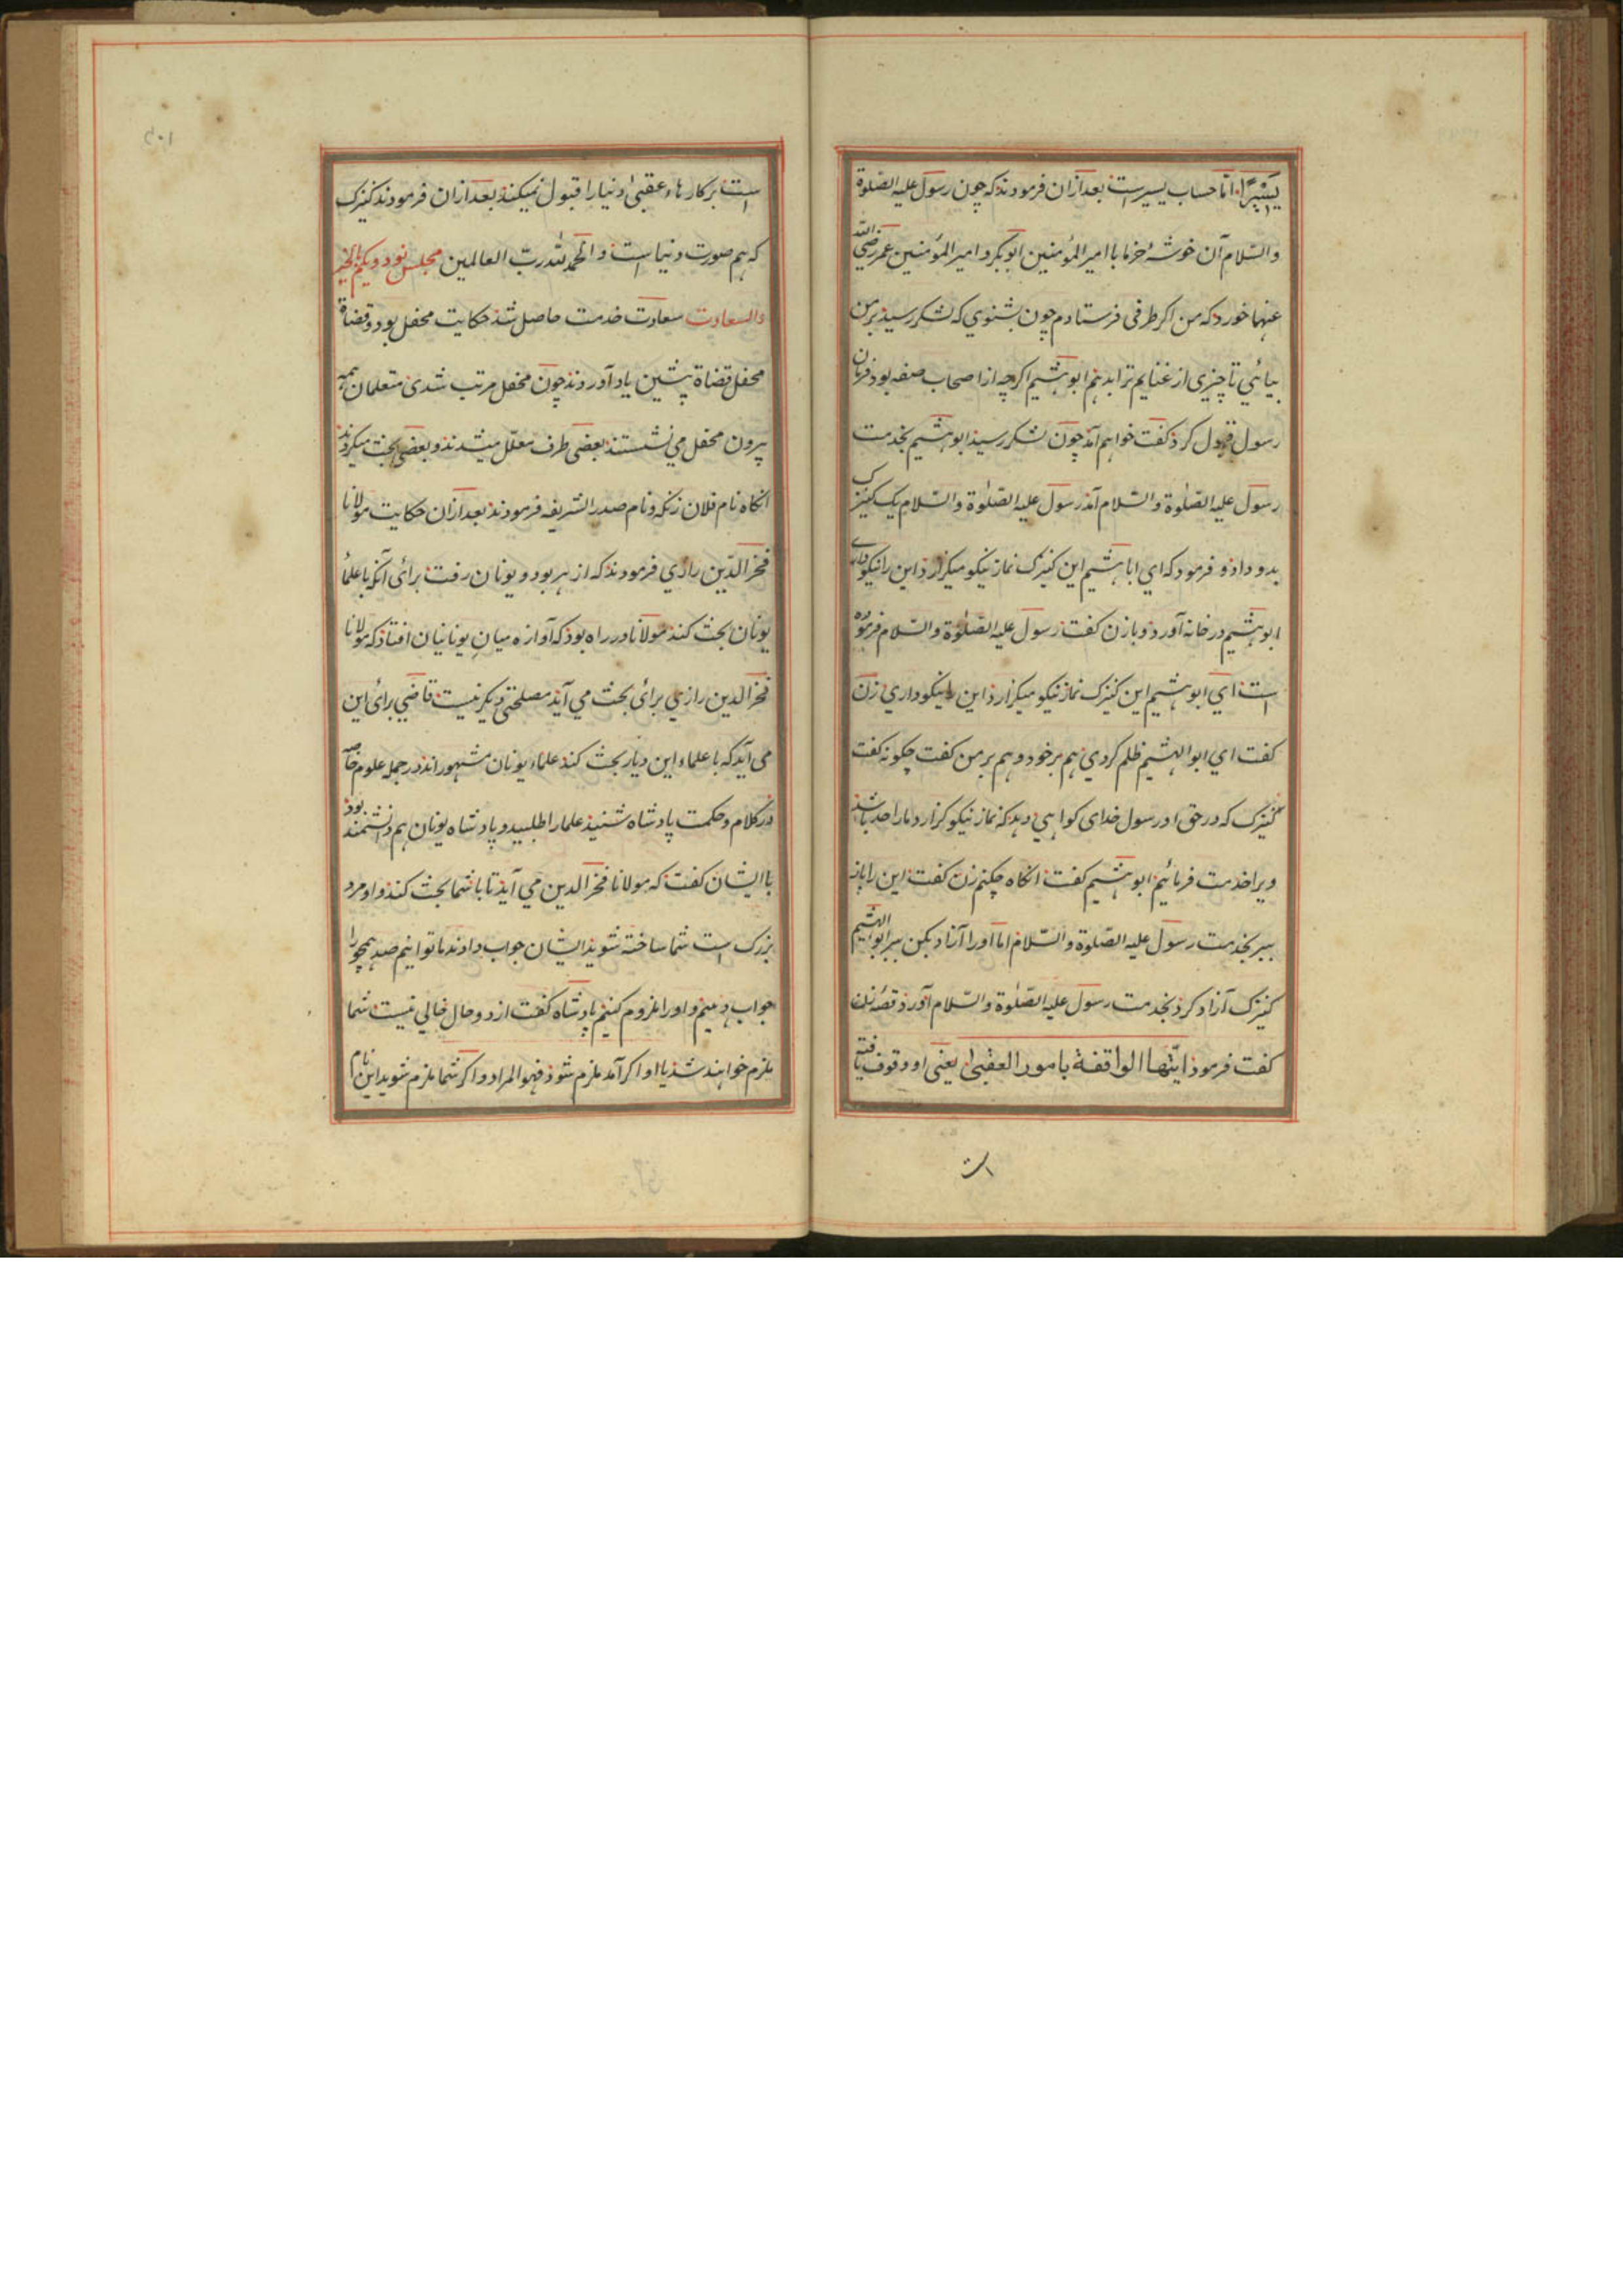 یَسِیْرًا انّا حساب یسیر است بعد ازان فرمودند که چون رسول علیه الصّلوة
والسّلام آن خوشهٔ خرما با امیر المؤمنین ابوبکر و امیر المؤمنین عمر رضی الله
عنهما خورد که من اکر طرفی فرستادم چون بشنوی که لشکر رسید بر من
بیائی تا چیزی از غنایم ترا بدهم ابو هشیم اکرچه از اصحاب صفه بود فرمان
رسول قبول کرد کفت خواهم آمد چون لشکر رسید ابو هشیم بخدمت
رسول علیه الصّلوة والسّلام آمد رسول علیه الصّلوة والسّلام یک کنیزک
بدو داد و فرمود که ای ابا هشیم این کنیزک نماز نیکو میکزارد این را نیکو داری
ابو هشیم در خانه آورد و با زن کفت رسول علیه الصّلوة والسّلام فرموده
است ای ابو هشیم این کنیزک نماز نیکو میکزارد این را نیکو داری زن
کفت ای ابو الهشیم ظلم کردی هم بر خود و هم بر من کفت چکونه کفت
کنیزک که در حق او رسول خدای کواهی دهد که نماز نیکو کزارد ما را حد باشد
ویرا خدمت فرمائیم ابو هشیم کفت انکاه چکنم زن کفت این را باز
ببر بخدمت رسول علیه الصّلوة والسّلام اما اورا آزاد بکن ببر ابو الهشیم
کنیزک آزاد کرد بخدمت رسول علیه الصّلوة والسّلام آورد قصّه زن
کفت فرمود ایّتها الواقفة بامور العقبیٰ یعنی او وقوف یافته
است
است بر کارهاء عقبیٰ دنیا را قبول نمیکند بعد ازان فرمودند کنیزک
که هم صورت دنیا است والحمد لله ربّ العالمین مجلس نود و یکم بالخیر
والسعادت سعادت خدمت حاصل شد حکایت محفل بود و قضاة
محفل قضاة پیشین یاد آوردند چون محفل مرتب شدی متعلمان همه
بیرون محفل می نشستند بعضی طرف معلّل میشدند و بعضی بحث میکردند
انکاه نام فلان زنکه و نام صدر الشریفه فرمودند بعد ازان حکایت مولانا
فخر الدّین رازی فرمودند که از هر بود و یونان رفت برای آنکه با علماء
یونان بحث کند مولانا در راه بود که آوازه میان یونانیان افتاد که مولانا
فخر الدین رازی برای بحث می آید مصلحتی دیکر نیست قاضی برای این
می آید که با علماء این دیار بحث کند علماء یونان مشهور اند در جمله علوم خاصه
در کلام و حکمت پادشاه شنید علما را طلبید و پادشاه یونان هم دانشمند بود
با ایشان کفت که مولانا فخر الدین می آید تا با شما بحث کند و او مرد
بزرک است شما ساخته شوید ایشان جواب دادند ما توانیم صد همچو را
جواب دهیم و اورا ملزوم کنیم پادشاه کفت از دو حال خالی نیست شما
ملزم خواهند شد یا او اکر آمد ملزم شود فهو المراد و اکر شما ملزم شوید این نام